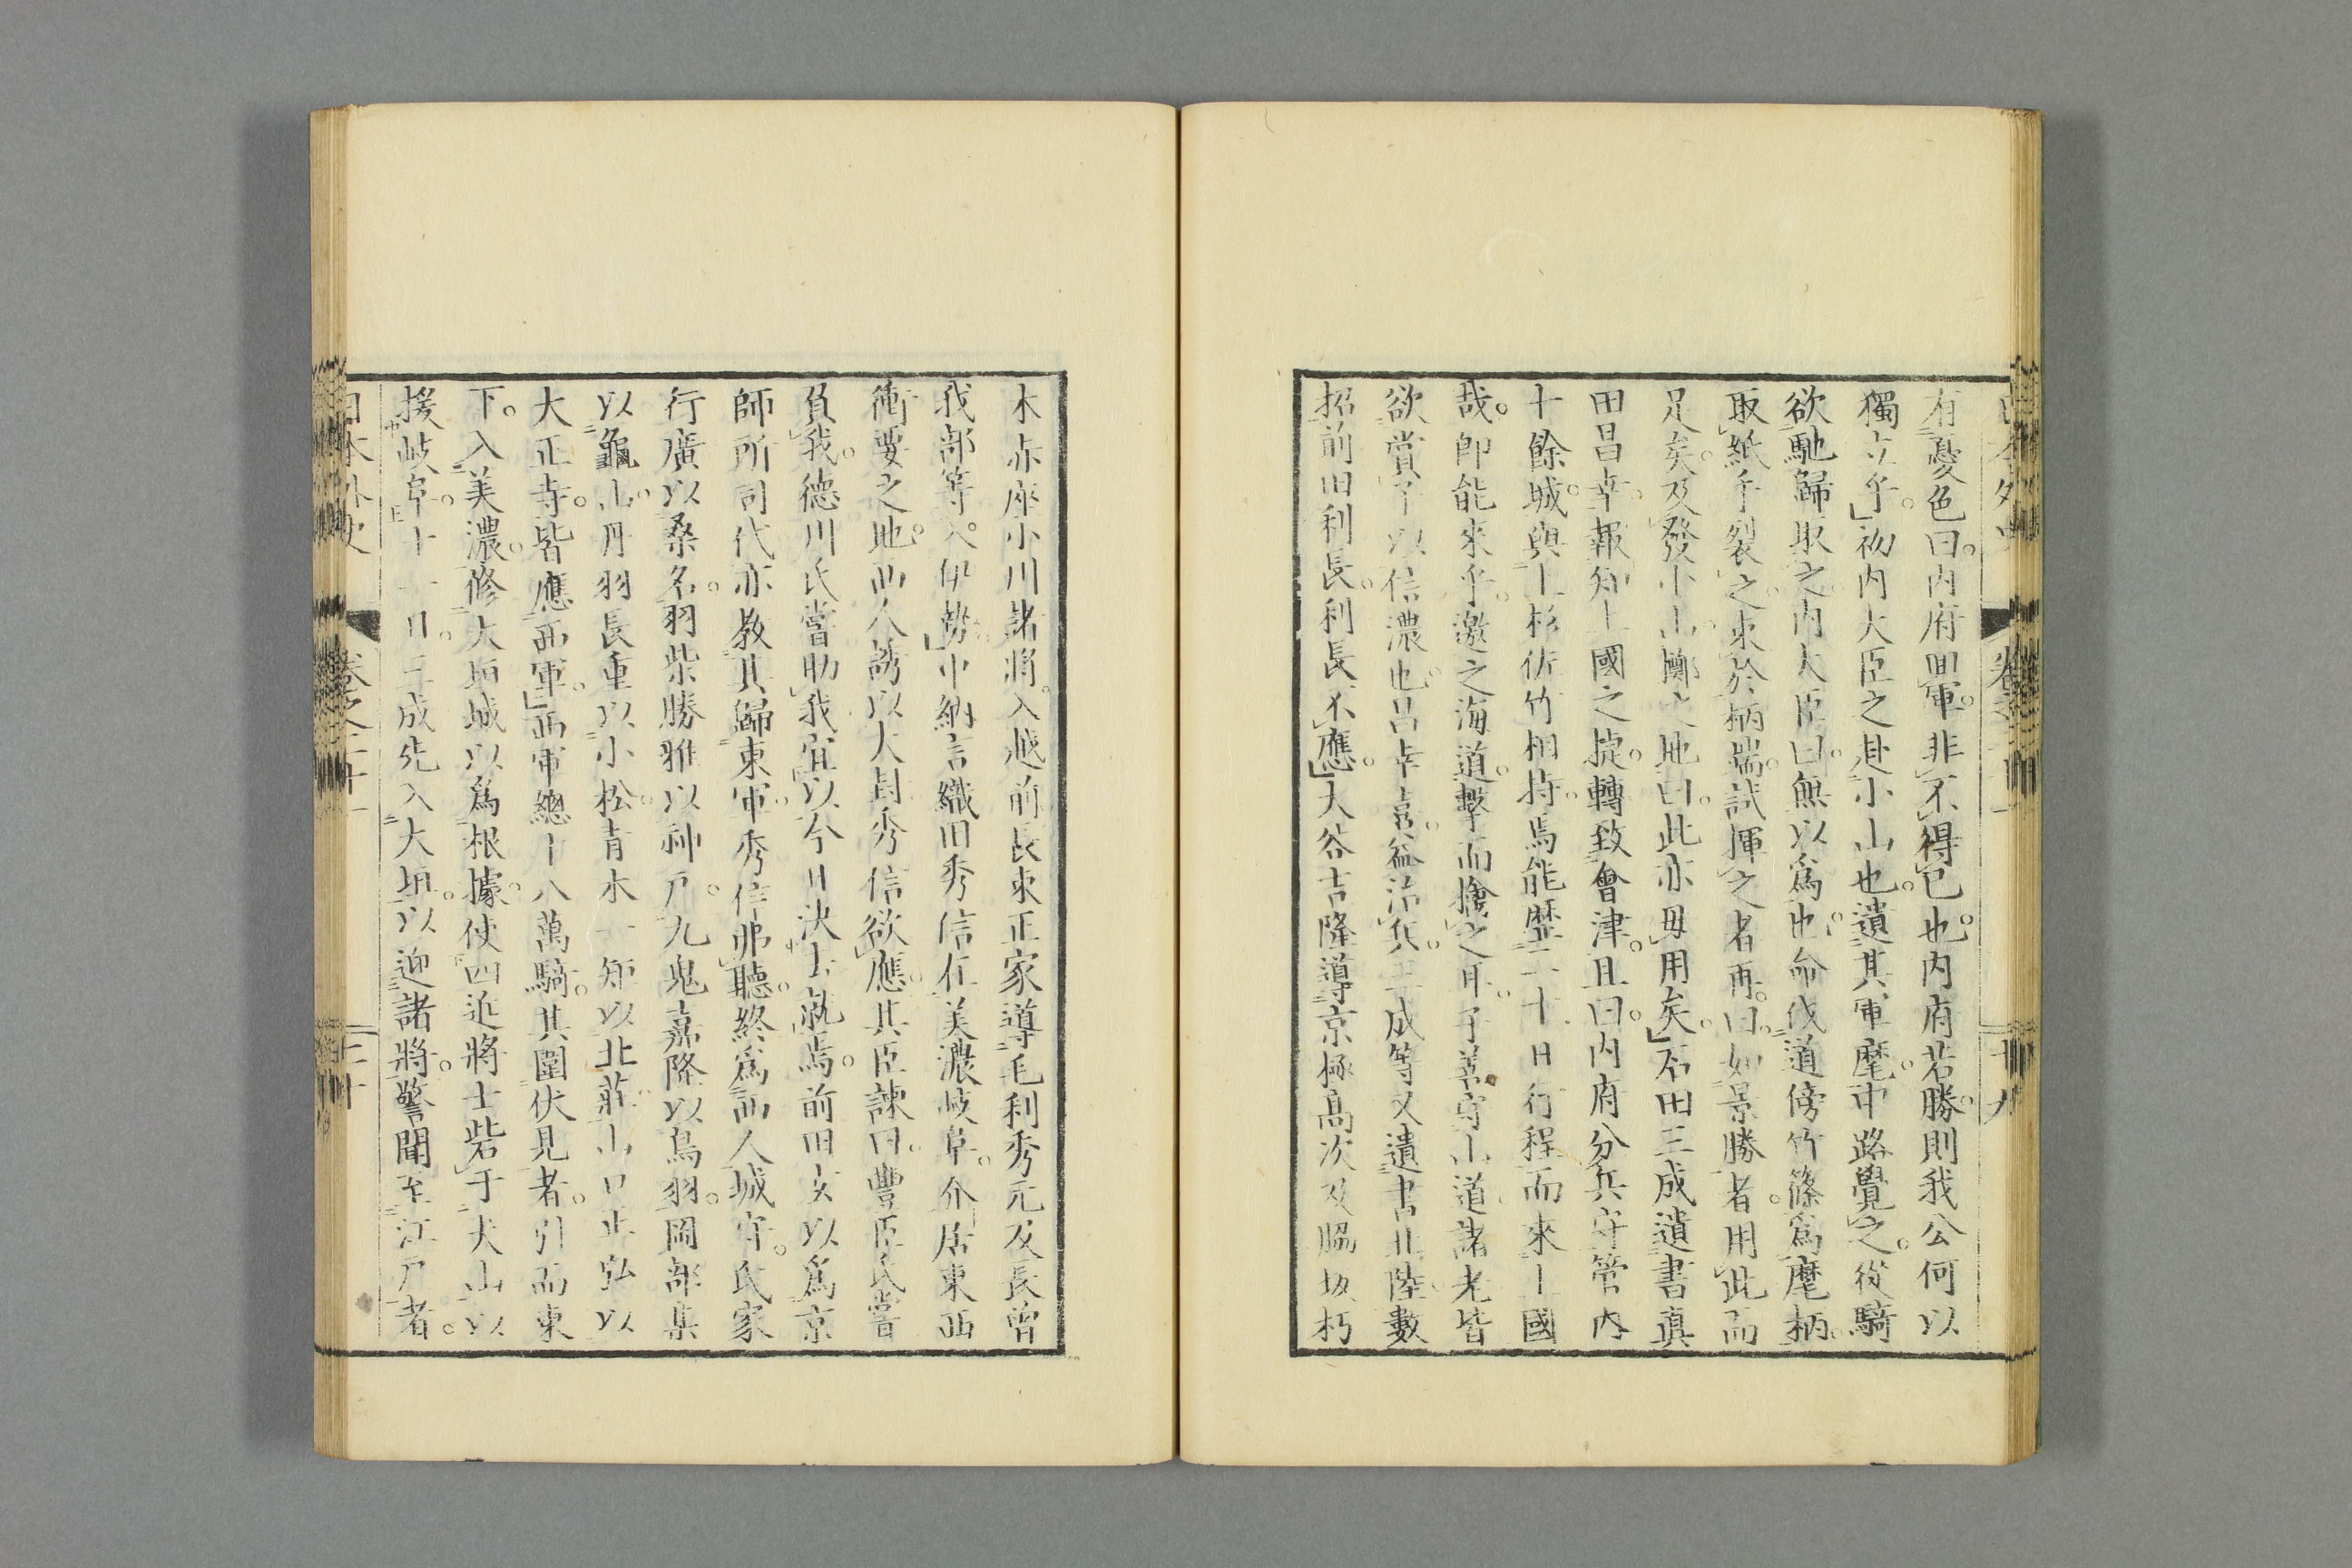 有憂色。曰。内府盟軍。非不得已也。内府若勝。則我公何以
獨立乎。初内大臣之赴小山也。遺其軍麾。中路覺之。從騎
欲馳歸取之。内大臣曰。無以爲也。命伐道傍竹篠爲麾柄。
取紙手裂之。束於柄端。試揮之者再。曰。如景勝者。用此而
足矣。及發小山。擲之地曰。此亦毋用矣。石田三成遺書真
田昌幸。報知上國之捷。轉致會津。且曰。内府分兵守管内
十餘城。與上杉佐竹相持。焉能歷二十日行程而來上國
哉。即能來乎。邀之海道。擊而擒之耳。子善守山道。諸老皆
欲賞子以信濃也。昌幸喜。益治兵。三成等又遺書北陸。數
招前田利長。利長不應。大谷吉隆導京極高次及脇坂朽
木赤座小川諸將。入越前。長束正家導毛利秀元及長曾
我部等。入伊勢。中納言織田秀信在美濃岐阜。介居東西
衝要之地。西人誘以大封。秀信欲應。其臣諫曰。豐臣氏嘗
負我。德川氏嘗助我。宜以今日決去就焉。前田玄以爲京
師所司代。亦教其歸東軍。秀信弗聽。終爲西人城守。氏家
行廣以桑名。羽柴勝雅以神戸。九鬼嘉隆以鳥羽。岡部某
以龜山。丹羽長重以小松。青木一矩以北莊。山口正弘以
大正寺。皆應西軍。西軍總十八萬騎。其圍伏見者。引而東
下。入美濃。修大垣城以爲根據。使四近將士砦于犬山以
援岐阜。十一日。三成先入大垣。以迎諸將。警聞至江戸者。
日本外史 卷之二十一 二十